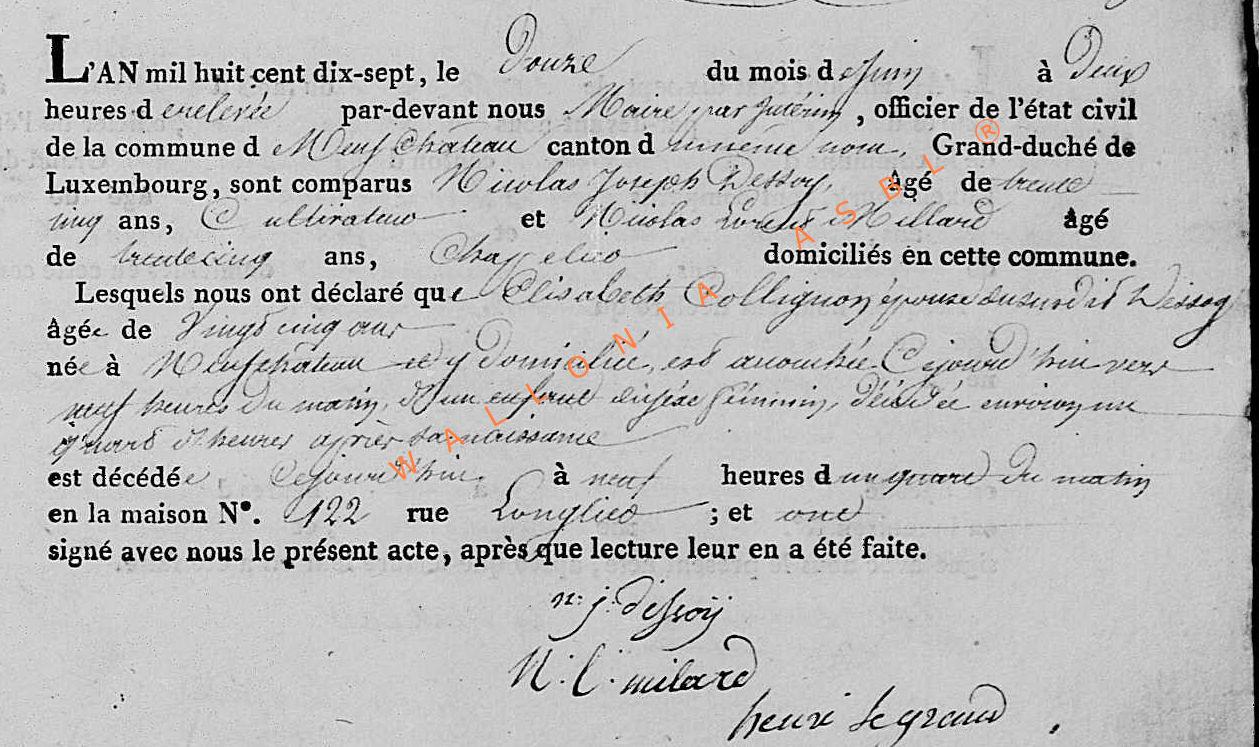 L'AN mil huit cent dix-sept, le Douze du mois de Juin à Deux
heures de relevée par-devant nous Maire par Intérim, officier de l'état civil
de la commune d Neufchâteau canton du même nom, Grand-duché de
Luxembourg, sont comparus Nicolas Joseph Dessoy, âgé de trente
cinq ans, Cultivateur et Nicolas Lorent Millard âgé
de trente cinq ans, Chapelier domiciliés en cette commune.
Lesquels nous ont déclaré que Elisabeth Collignon épouse du susdit Dessoy
âgée de Vingt cinq ans
née à Neufchâteau et y domiciliée, est accouchée Cejourd'hui vers
neuf heures du matin, d'un enfant du sexe féminin, décédée environ un
quart d'heures après sa naissance
est décédée Cejourd'hui, à neuf heures d un quart du matin
en la maison N°. 122 rue Longlier ; et ont
signé avec nous le présent acte, après que lecture leur en a été faite.
n: j: dessoÿ
N. l. milard
henri legrand
WALLONIA ASBL ®